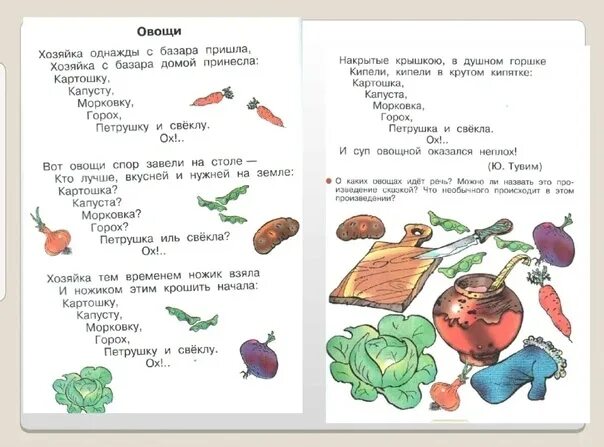 Овощи
Хозяйка однажды с базара пришла,
Хозяйка с базара домой принесла:
Картошку,
Капусту,
Морковку,
Горох,
Петрушку и свёклу.
Ох!..
Вот овощи спор завели на столе —
Кто лучше, вкусней и нужней на земле:
Картошка?
Капуста?
Морковка?
Горох?
Петрушка иль свёкла?
Ох!..
Хозяйка тем временем ножик взяла
И ножиком этим крошить начала:
Картошку,
Капусту,
Морковку,
Горох,
Петрушку и свёклу.
Ох!..
Накрытые крышкою, в душном горшке
Кипели, кипели в крутом кипятке:
Картошка,
Капуста,
Морковка,
Горох,
Петрушка и свёкла.
Ох!..
И суп овощной оказался неплох!
(Ю. Тувим)
О каких овощах идёт речь? Можно ли назвать это про-
изведение сказкой? Что необычного происходит в этом
произведении?